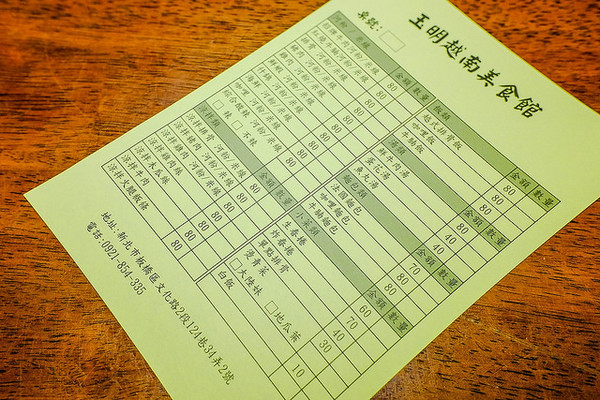 玉明越南美食館
桌號:
河粉／米線 金額 數量
牛肉 河粉／米線 80
紅燒牛腩河粉／米線 80
排骨 河粉／米線 80
豬肉 河粉／米線 80
雞肉 河粉／米線 80
什錦 河粉／米線 80
海鮮 河粉／米線 80
咖哩 河粉／米線 80
綜合酸辣 河粉／米線 80
辣 不辣
涼拌類 金額 數量
涼拌排骨 河粉／米線 80
涼拌豬肉 河粉／米線 80
涼拌雞肉 河粉／米線 80
涼拌木瓜絲 80
涼拌牛肉
涼拌火腿粄條 80
飯類 金額 數量
越式排骨飯 80
咖哩飯 80
牛腩飯 80
湯類 金額 數量
鮮牛肉湯 80
蛋花湯 40
魚丸湯 40
麵包類 金額 數量
法國麵包
咖哩麵包 70
牛腩麵包 80
小菜類 金額 數量
生春捲 60
炸春捲 70
燙青菜 40
單點排骨 30
大陸妹 地瓜葉
白飯 10
地址:新北市板橋區文化路2段124巷34弄2號
電話:0921-854-335